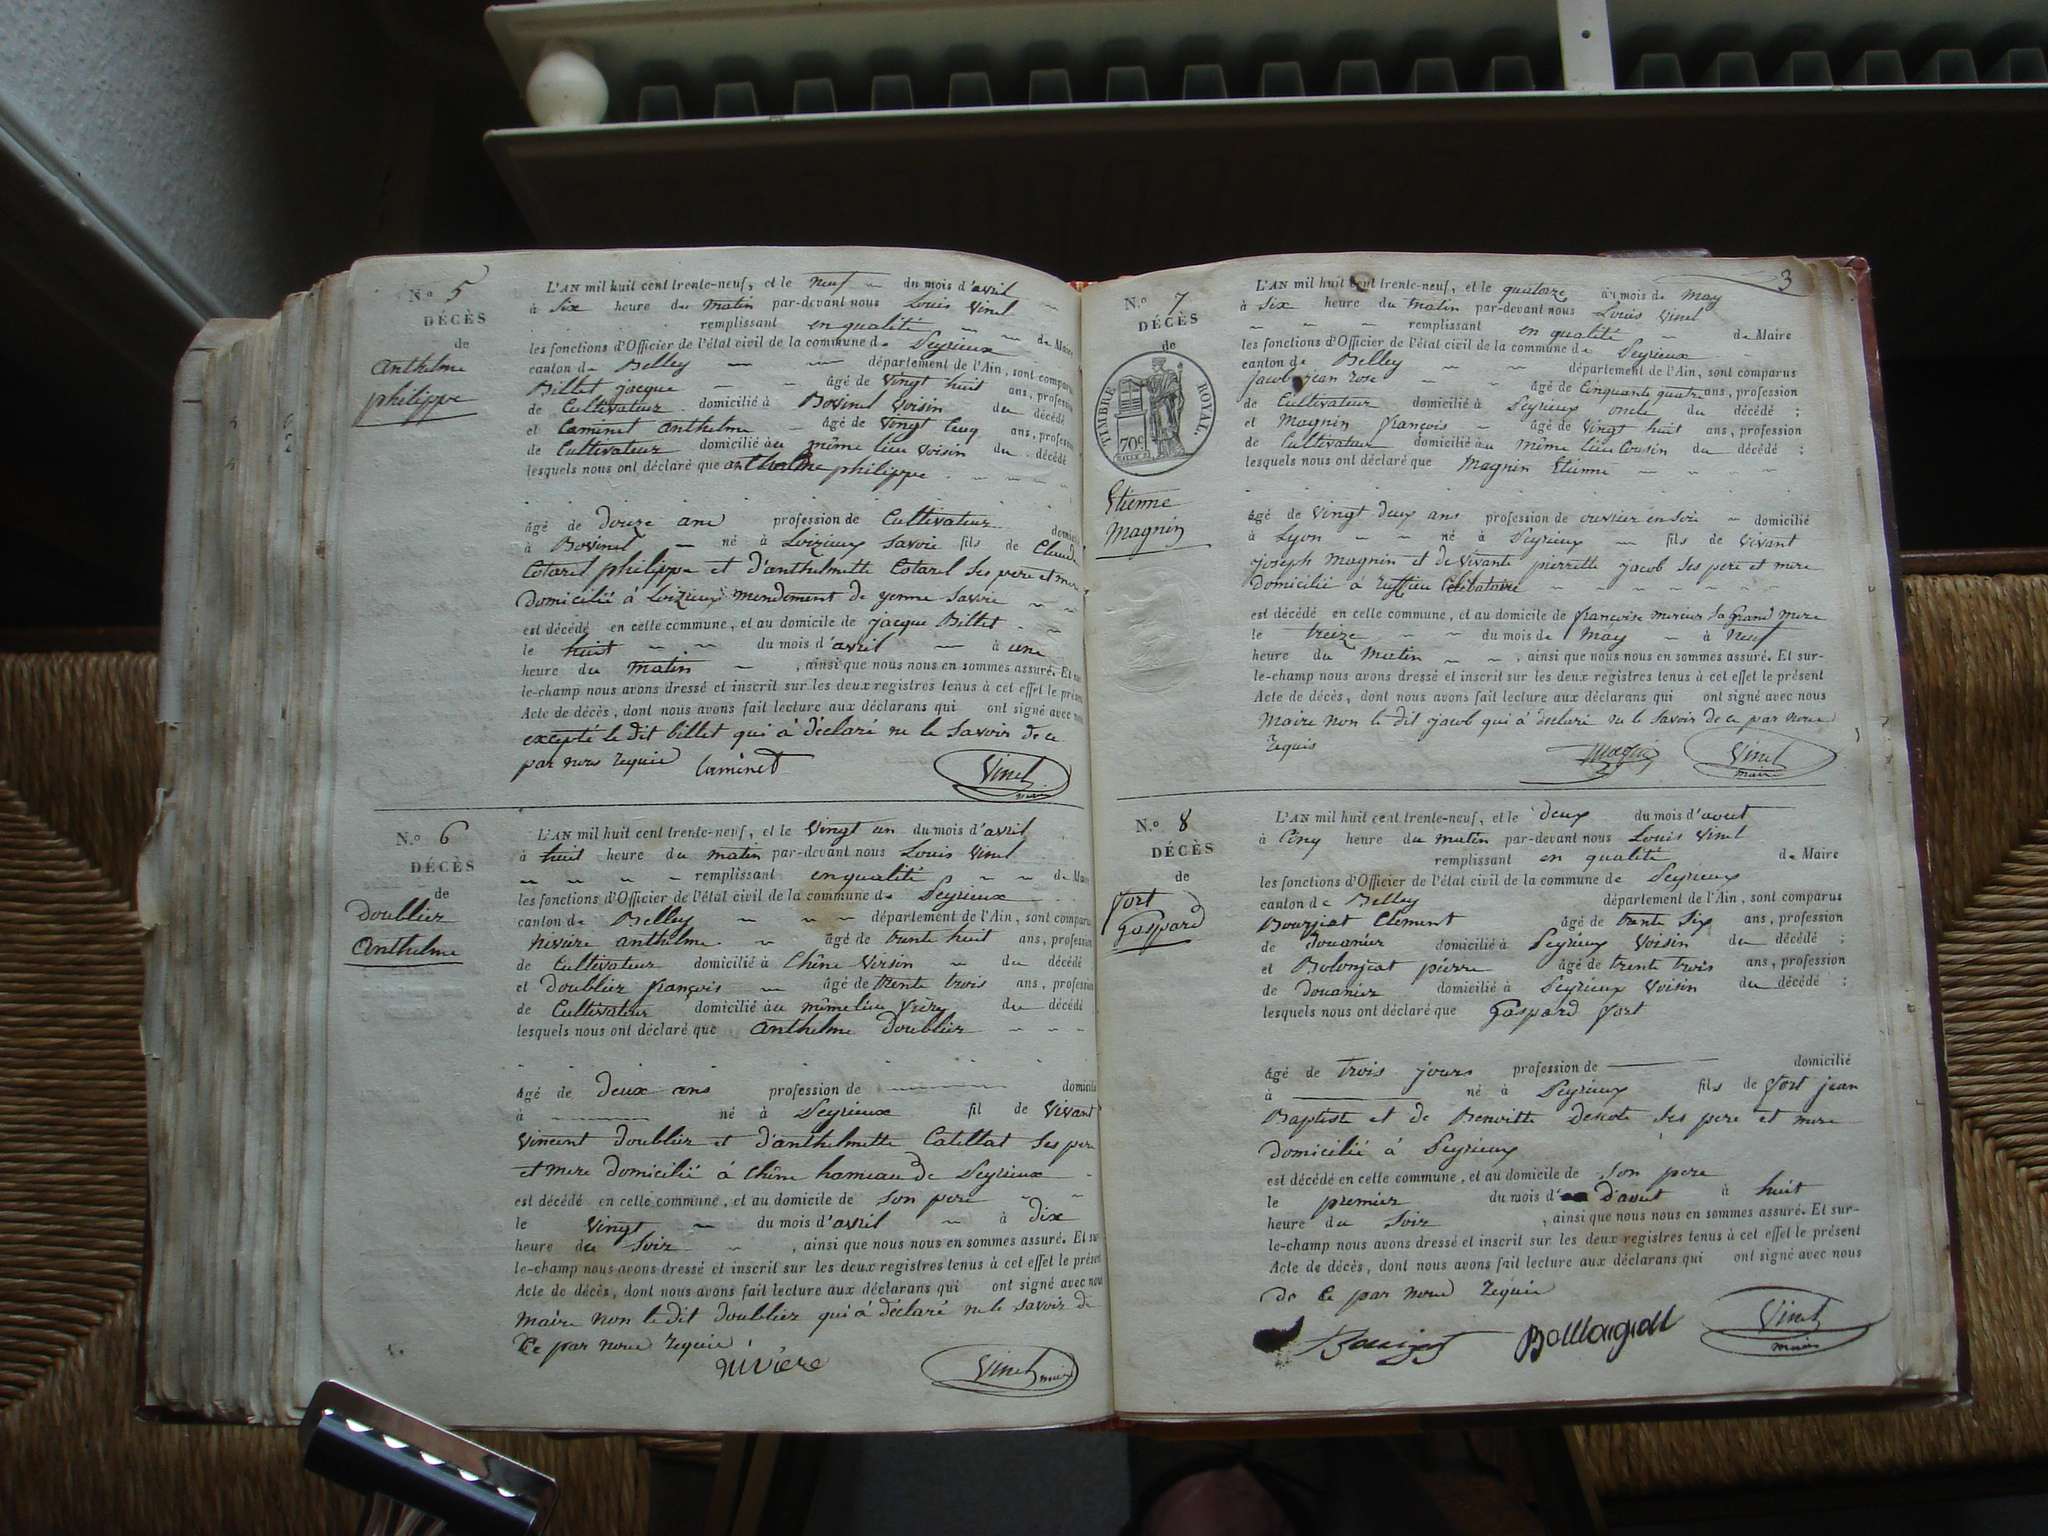 N.o 5
DÉCÈS
de
Anthelme
philippe
L'AN mil huit cent trente-neuf, et le neuf du mois d'avril
à six heure du matin par-devant nous Louis Vinel
remplissant en qualité de Maire
les fonctions d'Officier de l'état civil de la commune de Peyrieux
canton de Belley département de l'Ain, sont comparus
Billet jacque âgé de vingt huit ans, profession
de Cultivateur domicilié à Bovinel voisin du décédé
et Caminet anthelme âgé de vingt cinq ans, profession
de Cultivateur domicilié au même lieu voisin du décédé
lesquels nous ont déclaré que anthelme philippe
âgé de douze ans profession de Cultivateur domicilié
à Bovinel né à Loizieux Savoie fils de Claude
Cotarel philippe et d'anthelmette Cotarel ses pere et mere
domicilié à Loizieux mendement de yenne Savoie
est décédé en cette commune, et au domicile de jacque Billet
le huit du mois d'avril à une
heure du matin , ainsi que nous nous en sommes assuré. Et sur-
le-champ nous avons dressé et inscrit sur les deux registres tenus à cet effet le présent
Acte de décès, dont nous avons fait lecture aux déclarans qui ont signé avec nous
excepté le dit billet qui à déclaré ne le savoir de ce
par nous requis Caminet Vinel
maire
N.o 6
DÉCÈS
de
doublier
anthelme
L'AN mil huit cent trente-neuf, et le vingt un du mois d'avril
à huit heure du matin par-devant nous Louis Vinel
remplissant en qualité de Maire
les fonctions d'Officier de l'état civil de la commune de Peyrieux
canton de Belley département de l'Ain, sont comparus
riviere anthelme âgé de trente huit ans, profession
de Cultivateur domicilié à Chêne voisin du décédé
et doublier françois âgé de trente trois ans, profession
de Cultivateur domicilié au même lieu frère du décédé
lesquels nous ont déclaré que anthelme doublier
âgé de deux ans profession de domicilié
à né à Peyrieux fil de vivant
Vincent doublier et d'anthelmette Catillat ses pere
et mere domicilié à Chêne hameau de Peyrieux
est décédé en cette commune, et au domicile de son pere
le vingt du mois d'avril à dix
heure du soir , ainsi que nous nous en sommes assuré. Et sur-
le-champ nous avons dressé et inscrit sur les deux registres tenus à cet effet le présent
Acte de décès, dont nous avons fait lecture aux déclarans qui ont signé avec nous
maire non le dit doublier qui à déclaré ne le savoir de
ce par nous requis
riviere Vinel maire
3
N.o 7
DÉCÈS
de
TIMBRE ROYAL.
70c
Etienne
Magnin
L'AN mil huit cent trente-neuf, et le quatorze du mois de may
à six heure du matin par-devant nous Louis Vinel
remplissant en qualité de Maire
les fonctions d'Officier de l'état civil de la commune de Peyrieux
canton de Belley département de l'Ain, sont comparus
jacob jean rose âgé de cinquante quatre ans, profession
de Cultivateur domicilié à Peyrieux oncle du décédé ;
et Magnin françois âgé de vingt huit ans, profession
de Cultivateur domicilié au même lieu Cousin du décédé ;
lesquels nous ont déclaré que Magnin Etienne
âgé de vingt deux ans profession de ouvrier en soie domicilié
à Lyon né à Peyrieux fils de vivant
joseph Magnin et de vivante pierrette jacob ses pere et mere
domicilié à Célibataire
est décédé en cette commune, et au domicile de françoise mercier sa grand mere
le treize du mois de May à neuf
heure du matin , ainsi que nous nous en sommes assuré. Et sur-
le-champ nous avons dressé et inscrit sur les deux registres tenus à cet effet le présent
Acte de décès, dont nous avons fait lecture aux déclarans qui ont signé avec nous
maire non le dit jacob qui à déclaré ne le savoir de ce par nous
requis Magnin Vinel
maire
N.o 8
DÉCÈS
de
fort
Gaspard
L'AN mil huit cent trente-neuf, et le deux du mois d'aout
à cinq heure du matin par-devant nous Louis Vinel
remplissant en qualité de Maire
les fonctions d'Officier de l'état civil de la commune de Peyrieux
canton de Belley département de l'Ain, sont comparus
Bourjiat Clement âgé de trente six ans, profession
de douanier domicilié à Peyrieux voisin du décédé ;
et pierre âgé de trente trois ans, profession
de douanier domicilié à Peyrieux voisin du décédé ;
lesquels nous ont déclaré que Gaspard fort
âgé de trois jours profession de domicilié
à né à Peyrieux fils de fort jean
Baptiste et de ses pere et mere
domicilié à Peyrieux
est décédé en cette commune, et au domicile de son pere
le premier du mois d' d'aout à huit
heure du soir , ainsi que nous nous en sommes assuré. Et sur-
le-champ nous avons dressé et inscrit sur les deux registres tenus à cet effet le présent
Acte de décès, dont nous avons fait lecture aux déclarans qui ont signé avec nous
de ce par nous requis
Vinel
maire